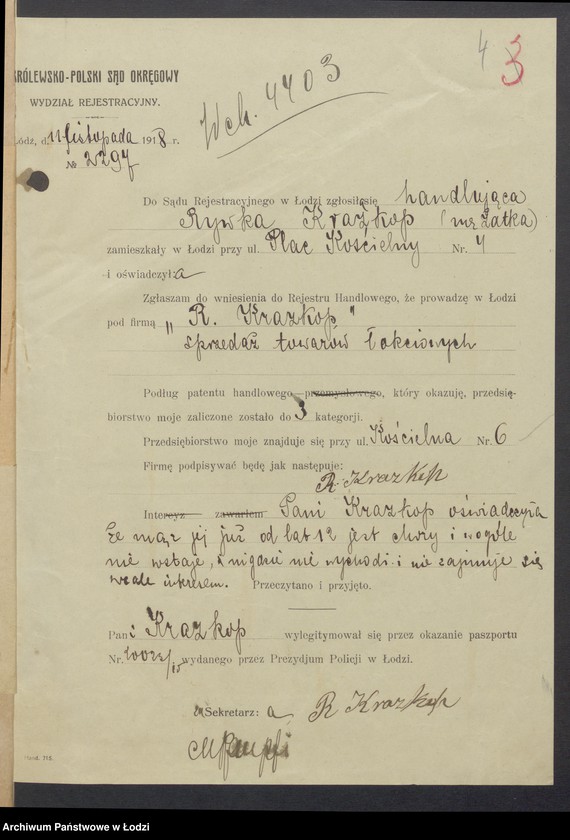 4 3
KRÓLEWSKO-POLSKI SĄD OKRĘGOWY
WYDZIAŁ REJESTRACYJNY.
Wch. 4403
Łódź, d. 11 listopada 1918 r.
№ 2297
Do Sądu Rejestracyjnego w Łodzi zgłosił się handlująca
Rywka Krazkop
zamieszkały w Łodzi przy ul. Plac Kościelny Nr. 4
i oświadczyła
Zgłaszam do wniesienia do Rejestru Handlowego, że prowadzę w Łodzi
pod firmą „R. Krazkop"
sprzedaż towarów łokciowych
Podług patentu handlowego-przemysłowego, który okazuję, przedsię-
biorstwo moje zaliczone zostało do 3 kategorji.
Przedsiębiorstwo moje znajduje się przy ul. Kościelna Nr. 6
Firmę podpisywać będę jak następuje:
R. Krazkop
Intercyz zawarłem Pani Krazkop oświadczyła
że mąż jej już od lat 12 jest chory i wogóle
nie wstaje, nigdzie nie wychodzi i nie zajmuje się
wcale interesem. Przeczytano i przyjęto.
Pani Krazkop wylegitymował się przez okazanie paszportu
Nr. wydanego przez Prezydjum Policji w Łodzi.
Sekretarz: a R Krazkop
Hand. 713.
Archiwum Państwowe w Łodzi